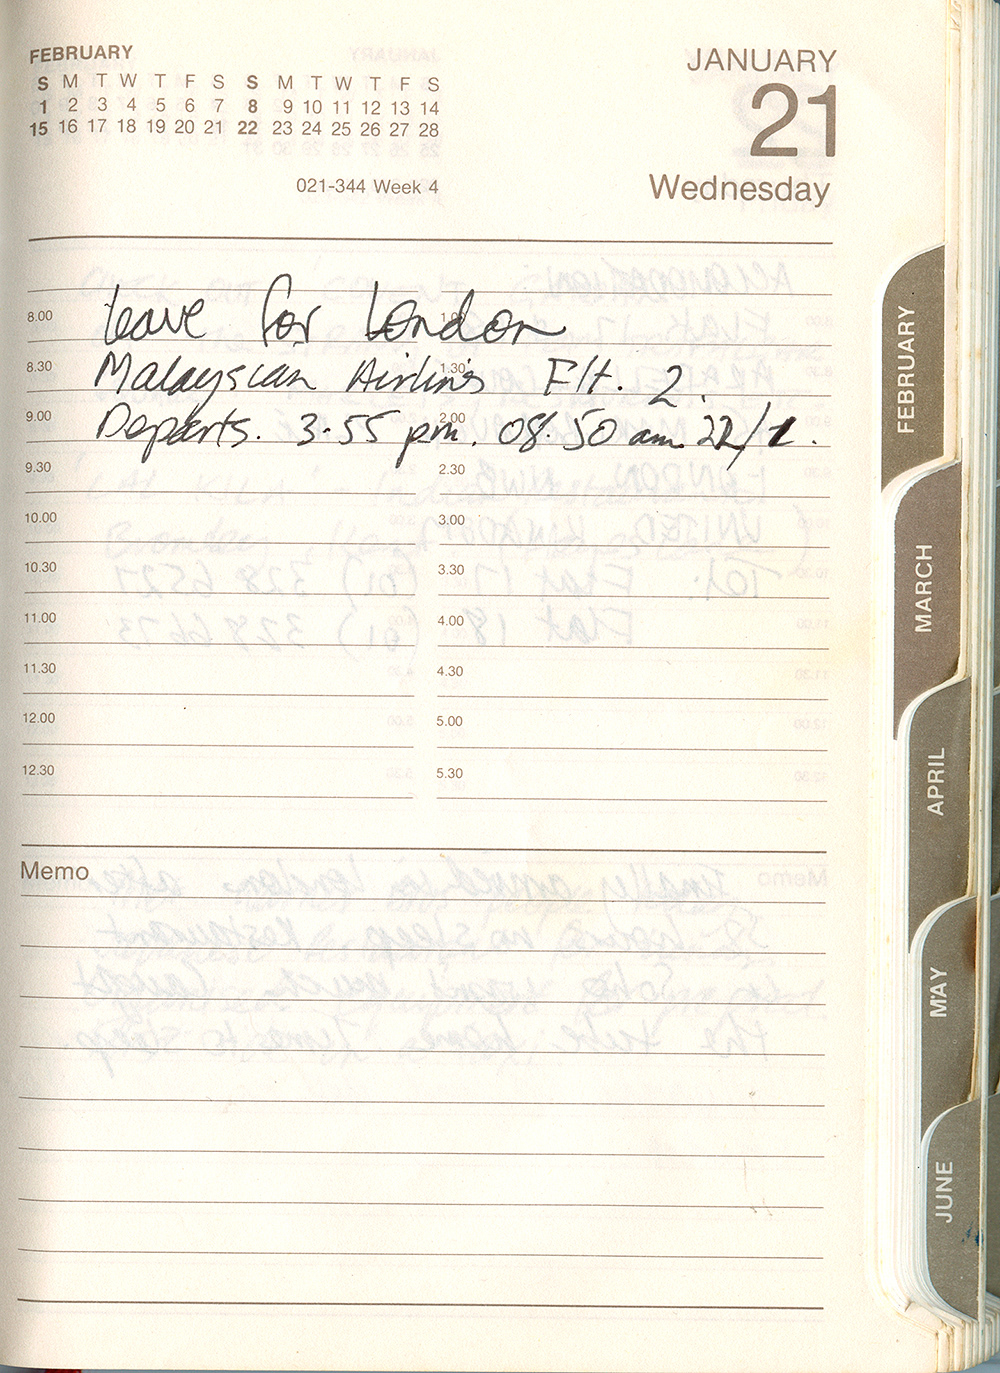 FEBRUARY
S M T W T F S S M T W T F S
1 2 3 4 5 6 7 8 9 10 11 12 13 14
15 16 17 18 19 20 21 22 23 24 25 26 27 28
021-344 Week 4
JANUARY
21
Wednesday
8.00 1.00
leave for London
8.30 1.30
Malaysian Airlines Flt. 2.
9.00 2.00
Departs. 3.55 pm. 08.50 am 22/1.
9.30 2.30
10.00 3.00
10.30 3.30
11.00 4.00
11.30 4.30
12.00 5.00
12.30 5.30
Memo
FEBRUARY
MARCH
APRIL
MAY
JUNE